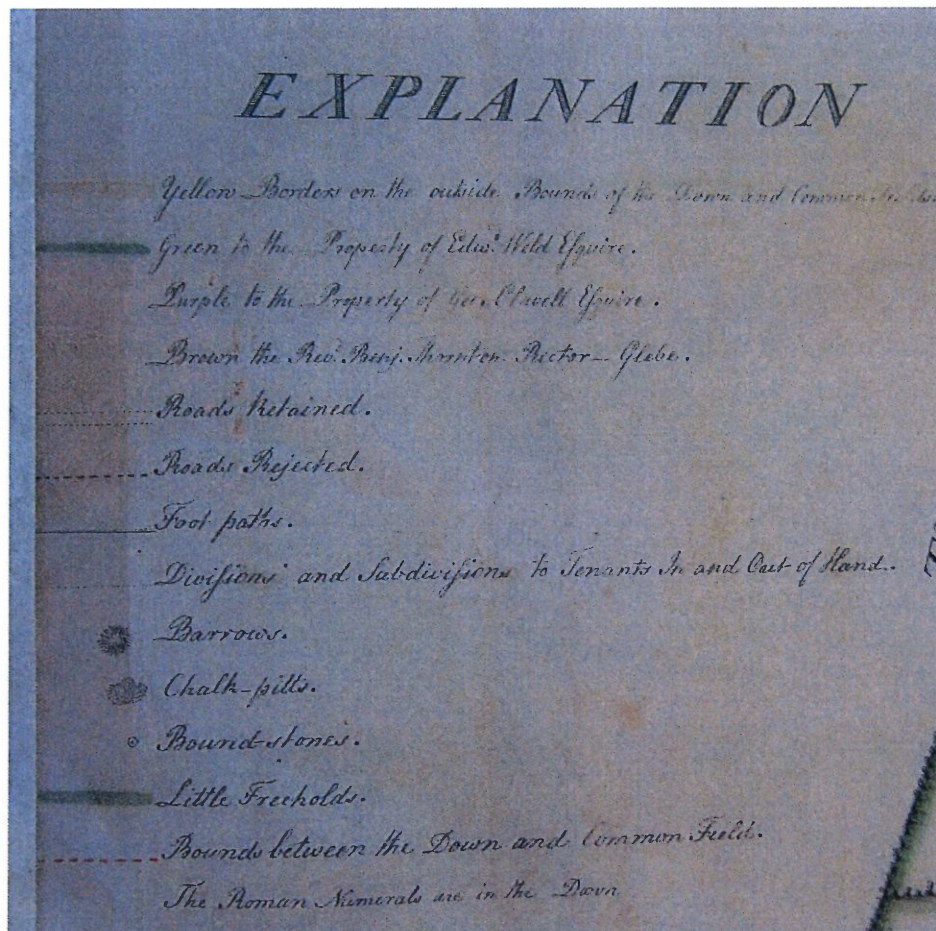 EXPLANATION
Yellow Borders on the outside Bounds of the Down and Common
Green to the Property of Edwd. Weld Esquire.
Purple to the Property of Geo. Clavell Esquire.
Brown the Revd. Benj. Thornton Rector – Glebe.
Roads Retained.
Roads Rejected.
Foot paths.
Divisions and Subdivisions to Tenants In and Out of Hand.
Barrows.
Chalk-pitts.
Bound-stones.
Little Freeholds.
Bounds between the Down and Common Field.
The Roman Numerals are in the Down